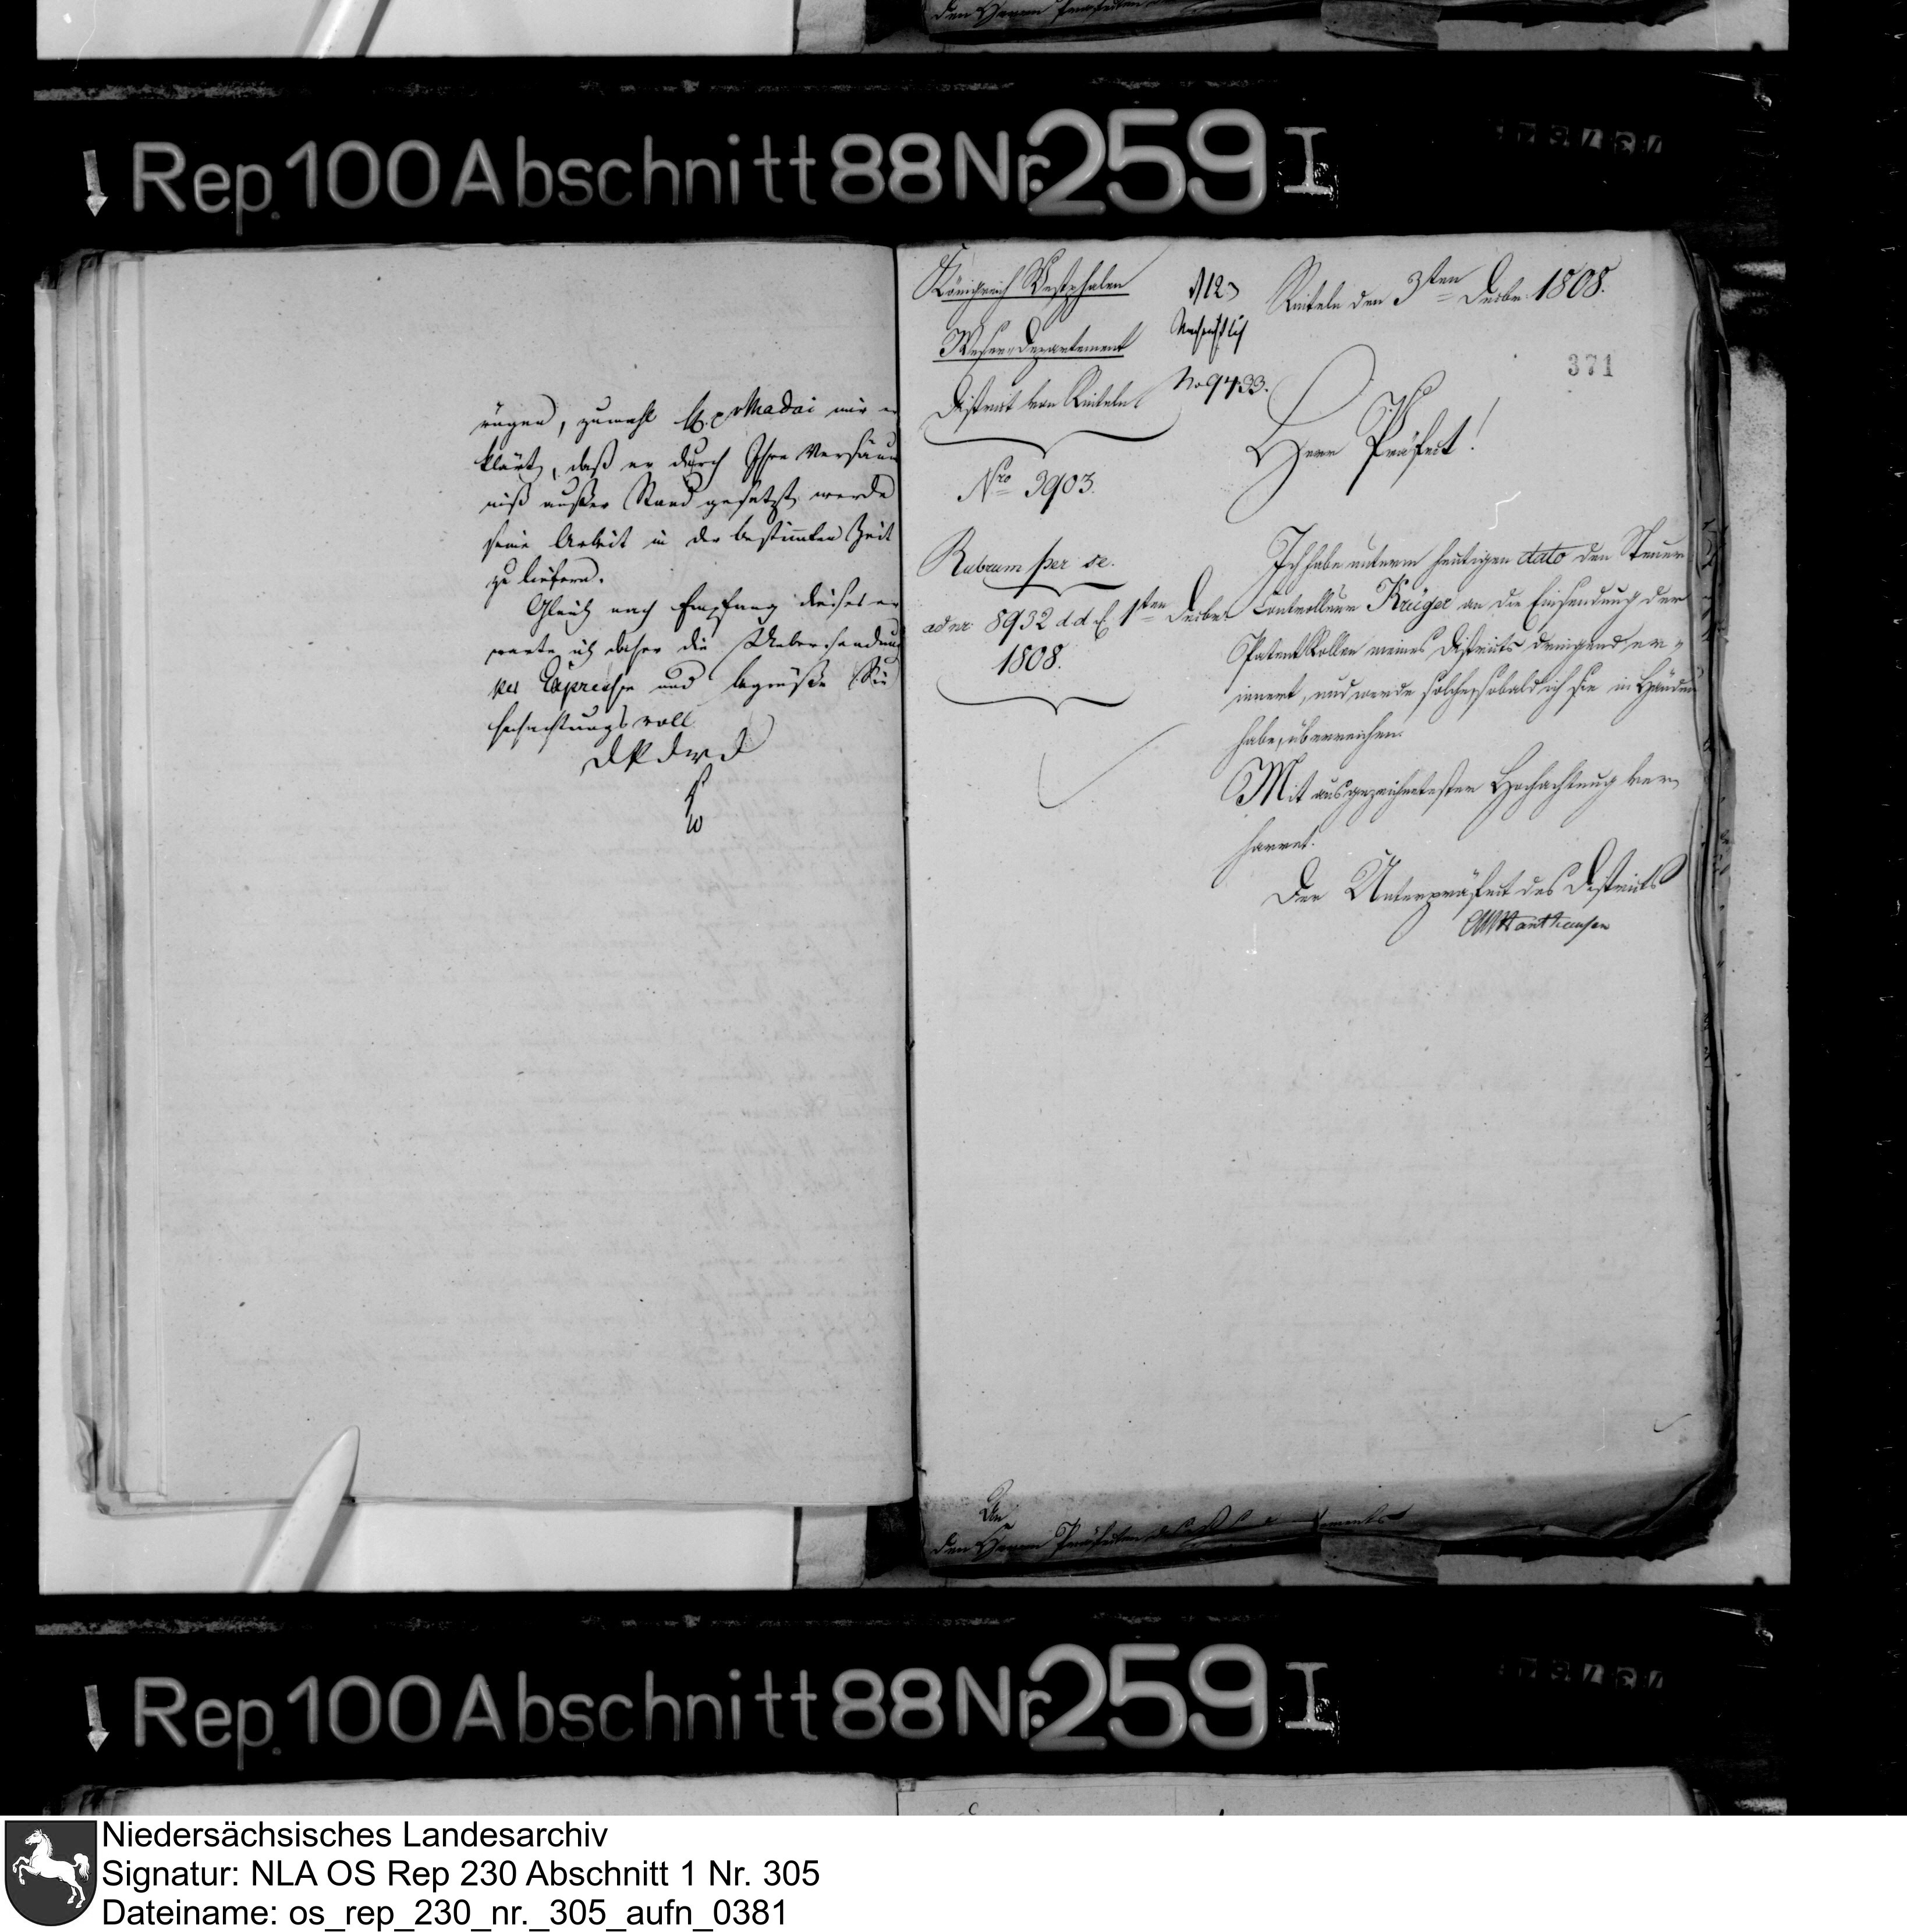 Rep. 100 Abschnitt 88 Nr. 259 I
rügen, zumahl H. v Madai mir er
klärt, daß er durch Ihre Versäum
niß außer Stand gesetzt werde
seine Arbeit in der bestimmten Zeit
zu liefern.
Gleich nach Empfang dieses er
warte ich daher die Uebersendung
per Expresse und begrüße Sie
hochachtungsvoll
D P d W D
Königreich Westphalen
Weser-Departement
District von Rinteln.
Nro 3903.
Rubrum per se.
ad nr. 8932 d d 1sten Decbr.
1808.
No 9433.
Rinteln den 3ten Decbr. 1808.
371
Herr Präfect!
Ich habe unterm heutigen dato den Steuer
Controlleur Krüger an die Einsendung der
Patent Rollen meines Districts dringend er-
innert, und werde solche, sobald ich sie in Händen
habe, überreichen.
Mit ausgezeichnetester Hochachtung ver-
harret.
Der Unterpräfect des Districts
An
den Herrn Präfecten des
Rep. 100 Abschnitt 88 Nr. 259 I
Niedersächsisches Landesarchiv
Signatur: NLA OS Rep 230 Abschnitt 1 Nr. 305
Dateiname: os_rep_230_nr._305_aufn_0381